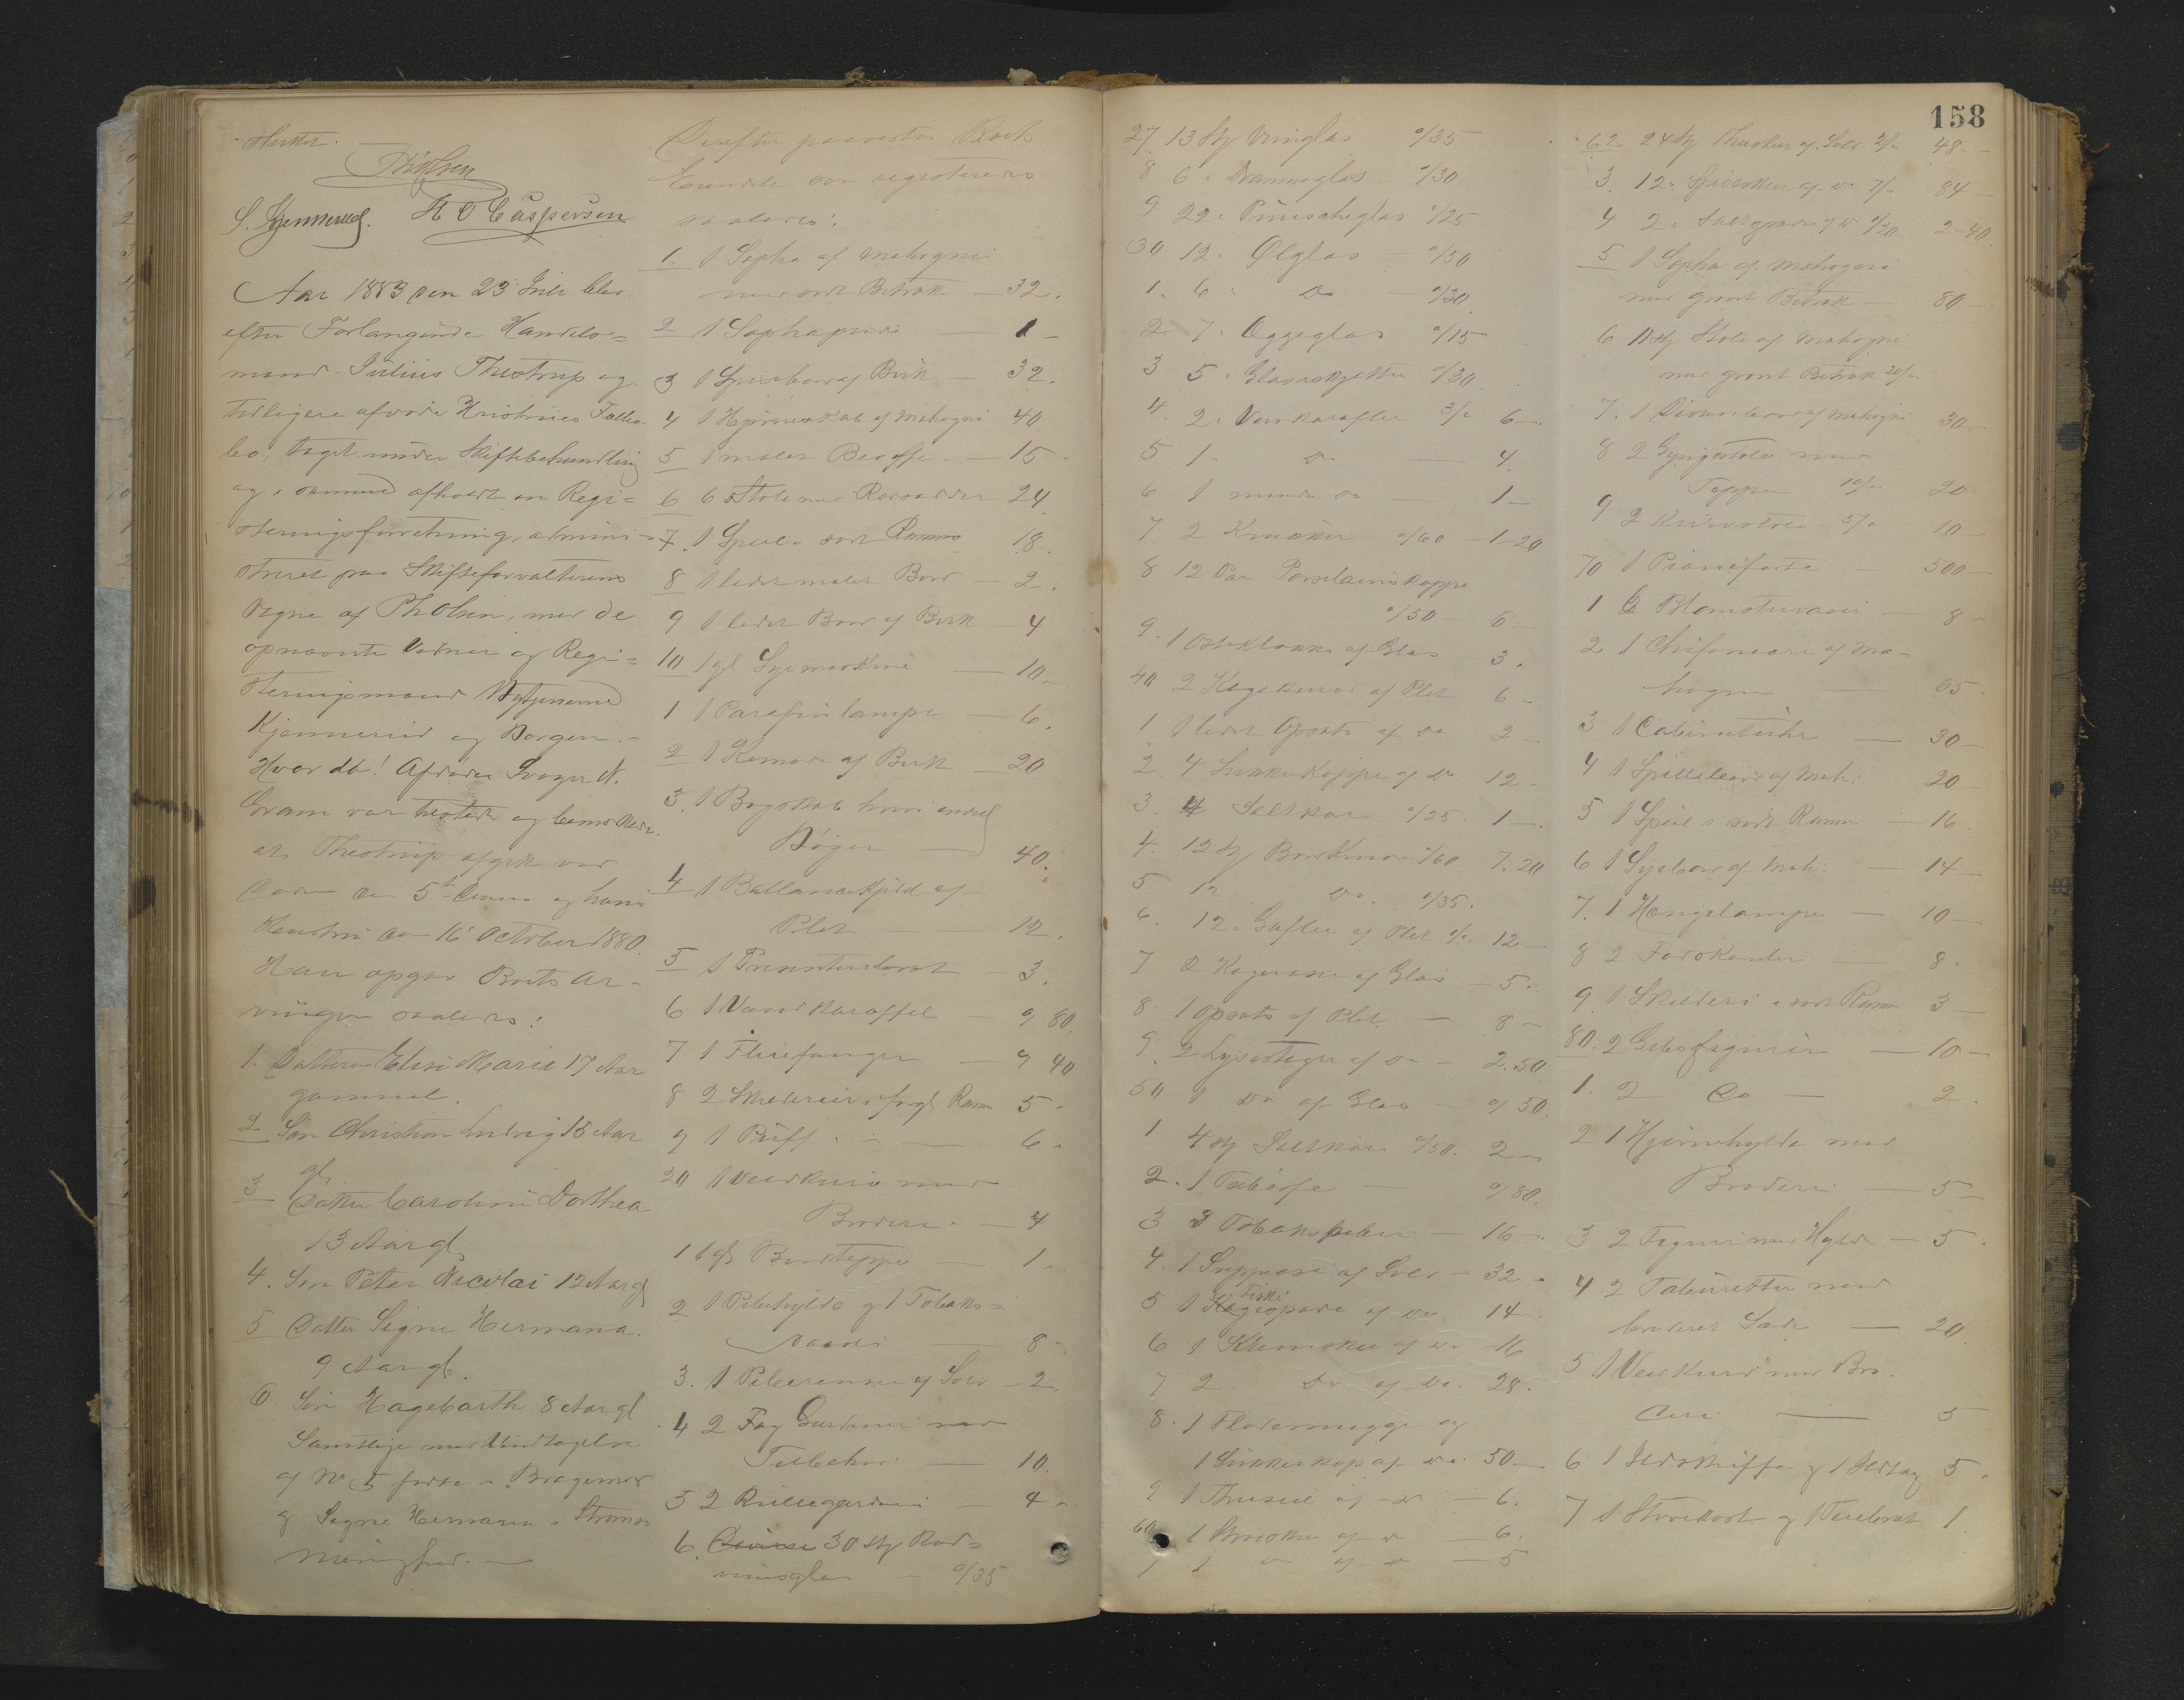 Hutter.
S. Kjennerud. H O Caspersen
Aar 1883 den 23 Juli blev
efter Forlangende Handels=
mand Julius Thestrup og
tidligere afdøde Hustrues Fælles
bo, taget under Skiftebehandling
og i samme afholdt en Regi=
streringsforretning, admini-
streret paa Skifteforvalterens
Vegne af Ph Olsen, med de
opnævnte Vidner og Regi=
streringsmænd
Kjennerud og Borgen.-
Hvor da! Afdødes Svoger N.
Gram var tilstede og bemærkede
at Thestrup afgik ved
Døden den 5te dennes og hans
Hustru den 16 October 1880.
Han opgav Boets Ar-
vinger saaledes:
1. Datteren Elise Marie 17 Aar
gammel.
2 Søn Christian Ludvig 15 Aar
gl
3 Datter Caroline Dorthea
13 Aar gl
4. Søn Peter Nicolai 12 Aar gl
5 Datter Signe Hermana
9 Aar gl.
6. Søn Hagebarth 8 Aar gl
Samtlige med Undtagelse
af No 5 fødte i Bragernes
og Signe Hermana i Strømsø
Menighed. —
Derefter paavistes Boets
Eiendele som registreredes
saaledes:
1. 1 Sopha af Mahogni
med sort Betræk — 32.
2 1 Sophapude — 1 -
3 1 Spisebord af Birk — 32.
4 1 Hjørneskab af Mahogni 40.
5 1 malet Buffe — 15 -
6 6 Stole med Rørsæder 24
7. 1 Speil i sort Ramme 18.
8 1 lidet malet Bord — 2.
9 1 lidet Bord af Birk — 4
10 1 gl Symaskine — 10 -
1 1 Parafinlampe — 6.
2 1 Komode af Birk — 20
3. 1 Bogskab hvori endel
Bøger — 40.
4 1 Ballanceskjold af
Plet — 12.
5 1 Presenterbret — 3.
6 1 Vandkaraffel — " 80.
7 1 Fluefanger — " 40
8 2 Skilderier i forgl Ramme 5 -
9 1 Puff — 6 -
20 1 Vedkurv med
Broderi — 4
1 1 gl Bordteppe — 1 -
2 1 Pibehylde og 1 Tobaks=
daase — 8 -
3. 1 Piberenser af Sølv — 2.
4 2 Fag Gardiner med
Tilbehør — 10.
5 2 Rullegardiner — 4 -
6. Diverse 30 Stk Rød=
vinsglas — "/35
158
27. 13 Stk Vinglas "/35
8 6 " Drammeglas "/30
9 22 " Punscheglas "/25
30 12 " Ølglas — "/50
1. 6 " Do — "/30
2 7 " Eggeglas "/15
3 5 " Glasasjetter "/30
4. 2 " Vinkarafler 3/" 6 -
5 1 " Do — 4.
6 1 mindre Do — 1 -
7 2 Krukker "/60 — 1-20
8 12 Par Porselainskopper
"/50 - 6 -
9 - 1 Osteklokke af Glas 3.
40 2 Kagekurve af Plet 6 -
1 1 lidet Opsats af Do 2 -
2 4 Sukkerkopper af Do 12 -
3. 4 Saltkar "/25 1 -.
4. 12 Stk Bordknive "/60 7.20
5 12 Do. "/35.
6. 12 " Gafler af Plet "/" 12 -
7 2 Kager af Glas — 5.
8. 1 Opsats af Plet — 8 -
9. 2 Lysestager af Do — 2.50
50 1 Do af Glas — "/50.
1 4 Stk Saltkar "/50. 2 -
2. 1 — "/80.
3 3 Tobakspiber — 16 -
4. 1 Suppeøse af Sølv — 32 -
5 1 Kagespade Fiske af Do 14 -
6 1 Skee af Do 16
7 2. Do af Do. 28.
8. 1 Flødemugge og
1 Sukkerkop af Do. 50 -
9 1 Thesie af Do — 6.
60 1 af Do — 6.
1 1 Do af Do — 5
62 24 Stk Theskeer af Sølv 2/" 48 -
3. 12 " Spiseskeer af Do 7/" 84 -
4 2 " Saltspader af Do 1/20. 2-40.
5 1 Sopha af Mahogni
med grønt Betræk — 80 -
6 11 Stk Stole af Mahogni
med grønt Betræk 20/"
7. 1 Divanbord af Mahogni 30 -
8 2 Gyngestole med
Tepper 10/" 20 -
9 2 Kurvstole 5/" 10 -
70 1 Pianoforte — 300 -
1 2 Blomstervaser — 8 -
2 1 Chifoniere af Ma-
hogni — 65 -
3 1 — 30 -
4 1 Spillebord af Mah: 20 -
5 1 Speil i sort Ramme — 16
6 1 Sybord af Mah: — 14 -
7. 1 Hængelampe — 10 -
8 2 — 8.
9. 1 Skilderi i sort Ramme 3 -
80. 2 Gibsfigurer — 10 -
1. 2 Do — 2.
2 1 Hjørnehylde med
Broderi — 5 -
3 2 Figurer med Hylde — 5.
4 2 Tabouretter med
broderet Sæde — 20
5 1 Vedkurv med Bro-
deri — 5
6 1 Ildskuffe og 1 Ildtang 5.
7 1 og 1 1